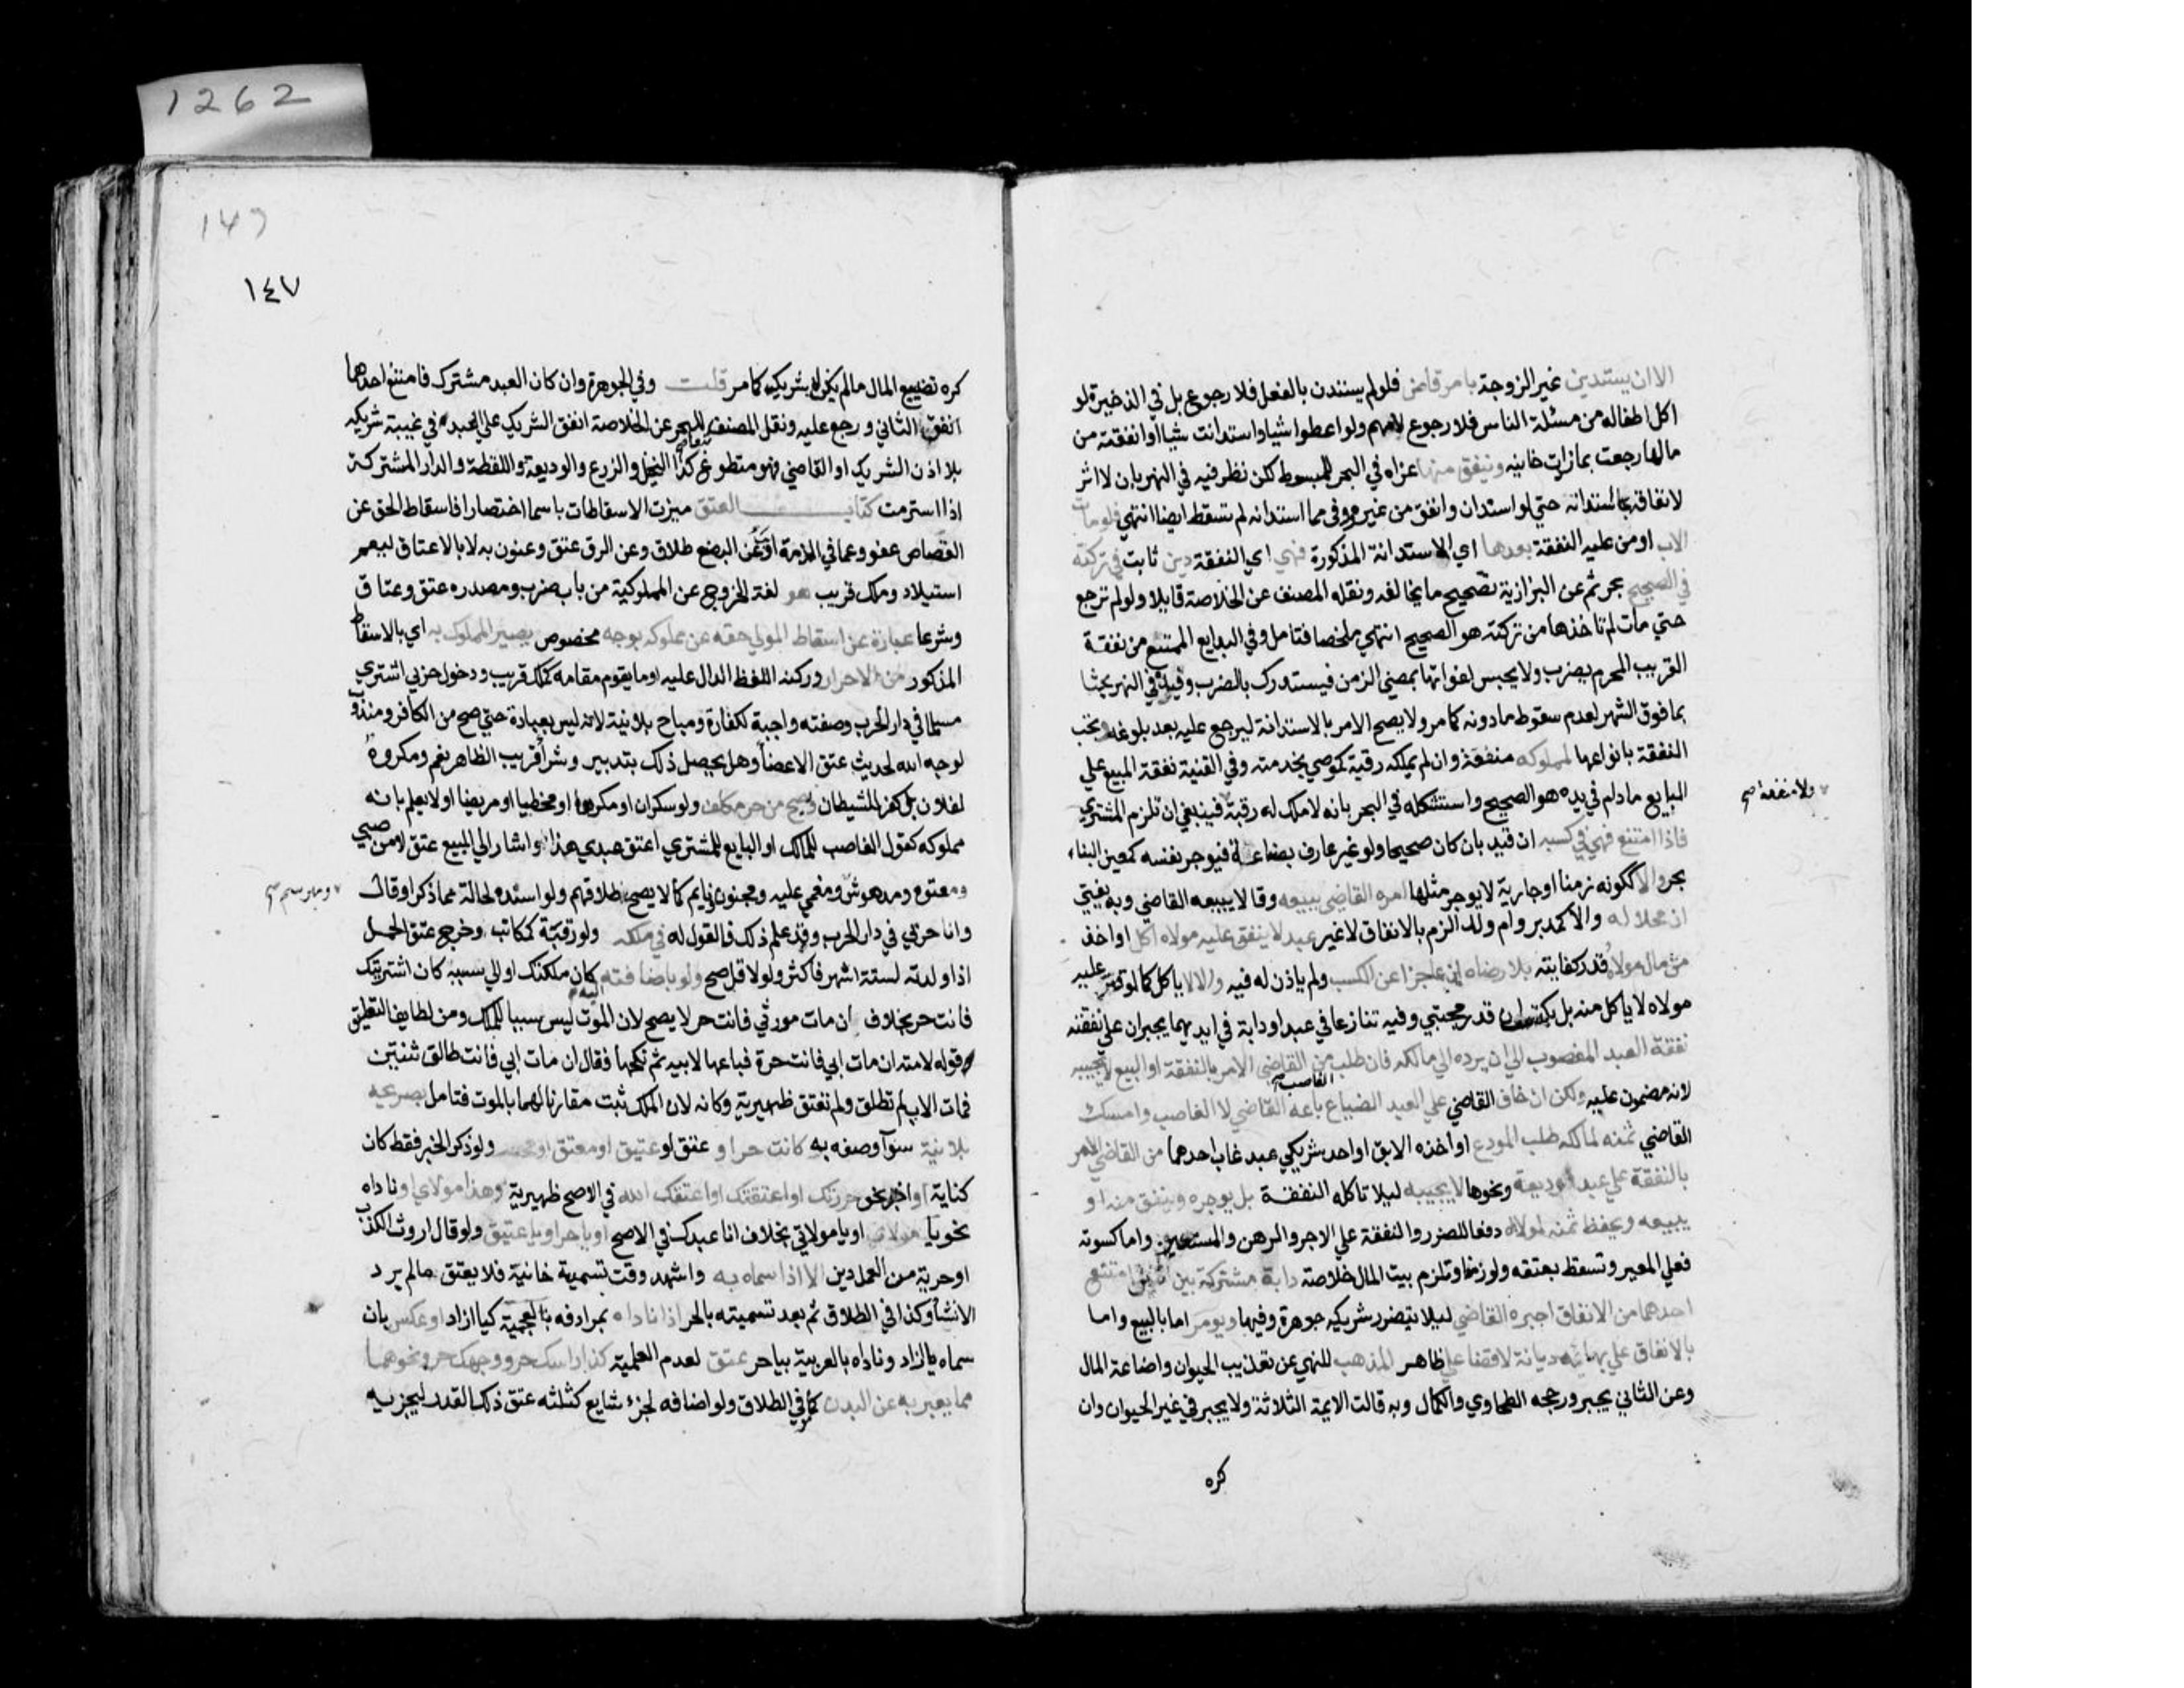 1262
الا ان يستدين غير الزوجة بامر قاض فلو لم يستدن بالفعل فلا رجوع بل في الذخيرة لو
اكل اطفاله من مسئلة الناس فلا رجوع لامهم ولو اعطوا شيا واستدانت شيا او انفقت من
مالها رجعت بما زاد خانيه وينفق منها عزاه في البحر للمبسوط لكن نظر فيه في النهر بان لا اثر
لانفاقه مما استدانه حتي لو استدان وانفق من غيره ووفي مما استدانه لم تسقط ايضا انتهي فلو مات
الاب او من عليه النفقة بعدها اي الاستدانة المذكورة فهي اي النفقة دين ثابت في تركته
في الصحيح بحر ثم عن البزازية تصحيح ما يخالفه ونقله المصنف عن الخلاصة قايلا ولو لم ترجع
حتي مات لم تاخذها من تركته هو الصحيح انتهي ملخصا فتامل وفي البدايع الممتنع من نفقة
القريب المحرم يضرب ولا يحبس لفواتها بمضي الزمن فيستدرك بالضرب وقيده في النهر بحثا
بما فوق الشهر لعدم سقوط ما دونه كما مر ولا يصح الامر بالاستدانة ليرجع عليه بعد بلوغه وتجب
النفقة بانواعها لمملوكه منفعة وان لم يملكه رقبة كموصي بخدمته وفي القنية نفقة المبيع علي
البايع ما دام في يده هو الصحيح واستشكله في البحر بانه لا ملك له رقبة فينبغي ان تلزم المشتري
ولا منفعة صح
فاذا امتنع فهي في كسبه ان قدر بان كان صحيحا ولو غير عارف بصناعة فيوجر نفسه كمعين البناء
بحر والا ككونه زمنا او جارية لا يوجر مثلها امره القاضي ببيعه وقالا يبيعه القاضي وبه يفتي
ان محلا له والا كمدبر وام ولد الزم بالانفاق لا غير عبد لا ينفق عليه مولاه اكل او اخذ
من مال مولاه قدر كفايته بلا رضاه ان عاجزا عن الكسب ولم ياذن له فيه والا لا ياكل كما لو قتر عليه
مولاه لا ياكل منه بل يكتسب ان قدر مجتبي وفيه تنازعا في عبد او دابة في ايديهما يجبران علي نفقته
نفقة العبد المغصوب الي ان يرده الي مالكه فان طلب من القاضي الامر بالنفقة او البيع لا يجيبه
الغاصب صح
لانه مضمون عليه ولكن ان خاف القاضي علي العبد الضياع باعه القاضي لا الغاصب وامسك
القاضي ثمنه لمالكه طلب المودع او اخذه الابق او احد شريكي عبد غاب احدهما من القاضي الامر
بالنفقة علي عبد الوديعة ونحوها لا يجيبه ليلا تاكله النفقة بل يوجره وينفق منه او
يبيعه ويحفظ ثمنه لمولاه دفعا للضرر والنفقة علي الاجر والرهن والمستعير واما كسوته
فعلي المعير وتسقط بعتقه ولو زمنا وتلزم بيت المال خلاصة دابة مشتركة بين اثنين امتنع
احدهما من الانفاق اجبره القاضي ليلا يتضرر شريكه جوهرة وفيها ويومر اما بالبيع واما
بالانفاق علي بهائمه ديانة لا قضا علي ظاهر المذهب للنهي عن تعذيب الحيوان واضاعة المال
وعن الثاني يجبر ورجحه الطحاوي والكمال وبه قالت الايمة الثلاثة ولا يجبر في غير الحيوان وان
كره
147
١٤٧
كره تضييع المال ما لم يكن له شريك كما مر قلت وفي الجوهرة وان كان العبد مشترك فامتنع احدهما
انفق الثاني ورجع عليه ونقل المصنف للبحر عن الخلاصة انفق الشريك علي العبد في غيبة شريكه
بلا اذن الشريك او القاضي فهو متطوع وكذا النخيل والزرع والوديعة واللقطة والدار المشتركة
اذا استرمت كتاب العتق ميزت الاسقاطات باسما اختصارا فاسقاط الحق عن
القصاص عفو وعما في الذمة ابرا وعن البضع طلاق وعن الرق عتق وعنون به لا بالاعتاق ليعم
استيلاد وملك قريب هو لغة الخروج عن المملوكية من باب ضرب ومصدره عتق وعتاق
وشرعا عبارة عن اسقاط المولي حقه عن مملوكه بوجه مخصوص يصير المملوك به اي بالاسقاط
المذكور من الاحرار وركنه اللفظ الدال عليه او ما يقوم مقامه كملك قريب ودخول حربي اشتري
مسلما في دار الحرب وصفته واجبة لكفارة ومباح بلا نية لانه ليس بعبادة حتي صح من الكافر ومندوب
لوجه الله لحديث عتق الاعضا وهل يحصل ذلك بتدبير وشرا قريب الظاهر نعم ومكروه
لفلان بل كفر للشيطان يصح من حر مكلف ولو سكران او مكرها او مخطيا او مريضا او لا يعلم بانه
مملوكه كقول الغاصب للمالك او البايع للمشتري اعتق عبدي هذا واشار الي المبيع عتق لا من صبي
ومعتوه ومدهوش ومغمي عليه ومجنون ونايم كما لا يصح طلاقهم ولو اسنده لحالة مما ذكر او قال
ومبرسم صح
وانا حربي في دار الحرب وقد علم ذلك فالقول له في ملكه ولو رقبة كمكاتب وخرج عتق الحمل
اذا ولدته لستة اشهر فاكثر ولو لاقل صح ولو باضافته كان ملكتك او الي سببه كان اشتريتك
فانت حر بخلاف ان مات مورثي فانت حر لا يصح لان الموت ليس سببا للملك ومن لطايف التعليق
قوله لامته ان مات ابي فانت حرة فباعها لابيه ثم نكحها فقال ان مات ابي فانت طالق ثنتين
فمات الاب لم تطلق ولم تعتق ظهيرية وكانه لان الملك ثبت مقارنا لهما بالموت فتامل بصريحه
بلا نية سوا وصفه به كانت حر او عتق او عتيق او معتق او محرر ولو ذكر الخبر فقط كان
كناية او اخبر نحو حررتك او اعتقتك او اعتقك الله في الاصح ظهيرية وهذا مولاي او ناداه
نحو يا مولاي او يا مولاتي بخلاف انا عبدك في الاصح او يا حر او يا عتيق ولو قال اردت الكذب
او حريته من العمل دين الا اذا سماه به واشهد وقت تسمية خانية فلا يعتق ما لم يرد
الانشا وكذا في الطلاق ثم بعد تسميته بالحر اذا ناداه بمرادفه بالعجمية كيا ازاد او عكس بان
سماه بازاد وناداه بالعربية بيا حر عتق لعدم العلمية كذا راسك حر ووجهك حر ونحوهما
مما يعبر به عن البدن كما مر في الطلاق ولو اضافه لجزء شايع كثلثه عتق ذلك القدر لتجزيه